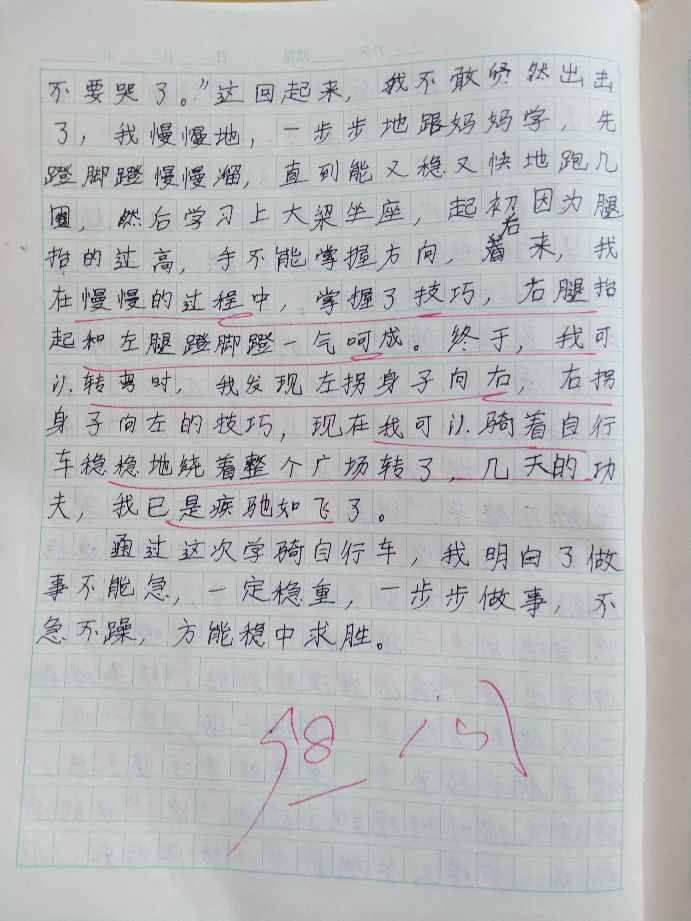 年 月 日 星期 天气
不要哭了。”这回起来，我不敢贸然出击
了，我慢慢地，一步步地跟妈妈学，先
蹬脚蹬慢慢溜，直到能又稳又快地跑几
圈，然后学习上大梁坐座，起初因为腿
抬的过高，手不能掌握方向，后来，我
在慢慢的过程中，掌握了技巧，右腿抬
起和左腿蹬脚蹬一气呵成。终于，我可
以转弯时，我发现左拐身子向右，右拐
身子向左的技巧，现在我可以骑着自行
车稳稳地绕着整个广场转了，几天的功
夫，我已是疾驰如飞了。
通过这次学骑自行车，我明白了做
事不能急，一定稳重，一步步做事，不
急不躁，方能稳中求胜。